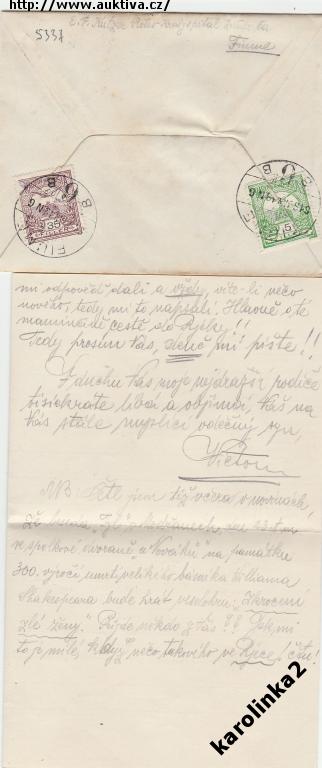 (http://www.auktiva.cz)
5337
Fiume
35
FILLÉR
5
mi odpověď dali a vždy, víte-li něco
nového, tedy mi to napsali. Hlavně o té
maminčině cestě do Rjeky!!
Tedy prosím Vás, denně mi pište!!
Z dálky Vás moje nejdražší rodiče
tisíckráte líbá a objímá, Váš na
Vás stále myslící vděčný syn,
Victor
NB. Četl jsem již včera v novinách,
že
ve spolkové dvoraně „u Nováků" na památku
300. výročí úmrtí velikého básníka Williama
Shakespeara bude hrát veselohru: „Zkrocení
zlé ženy." někdo z Vás?? Jak mi
to je milé, když něco takového ve čtu!
karolinka2